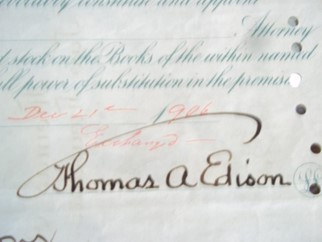 constitute and appoint
Attorney
stock on the Books of the within named
power of substitution in the premises
Dec 21st 1906
Exchang'd
Thomas A Edison